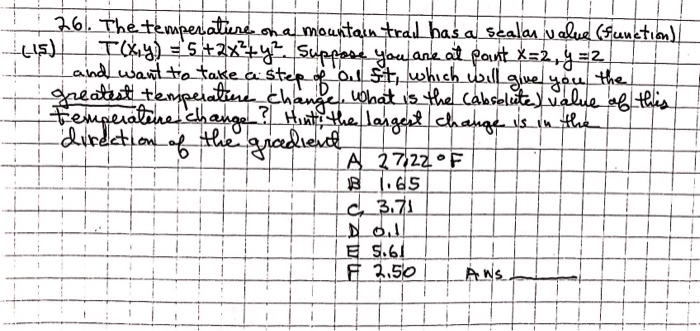 26. The temperature on a mountain trail has a scalar value (function)
(15) T(x,y) = 5+2x²+y². Suppose you are at point x=2, y=2
and want to take a step of 0.1 ft, which will give you the
greatest temperature change. What is the (absolute) value of this
temperature change? Hint: the largest change is in the
direction of the gradient
A 27.22 °F
B 1.65
C 3.71
D 0.1
E 5.61
F 2.50 Ans